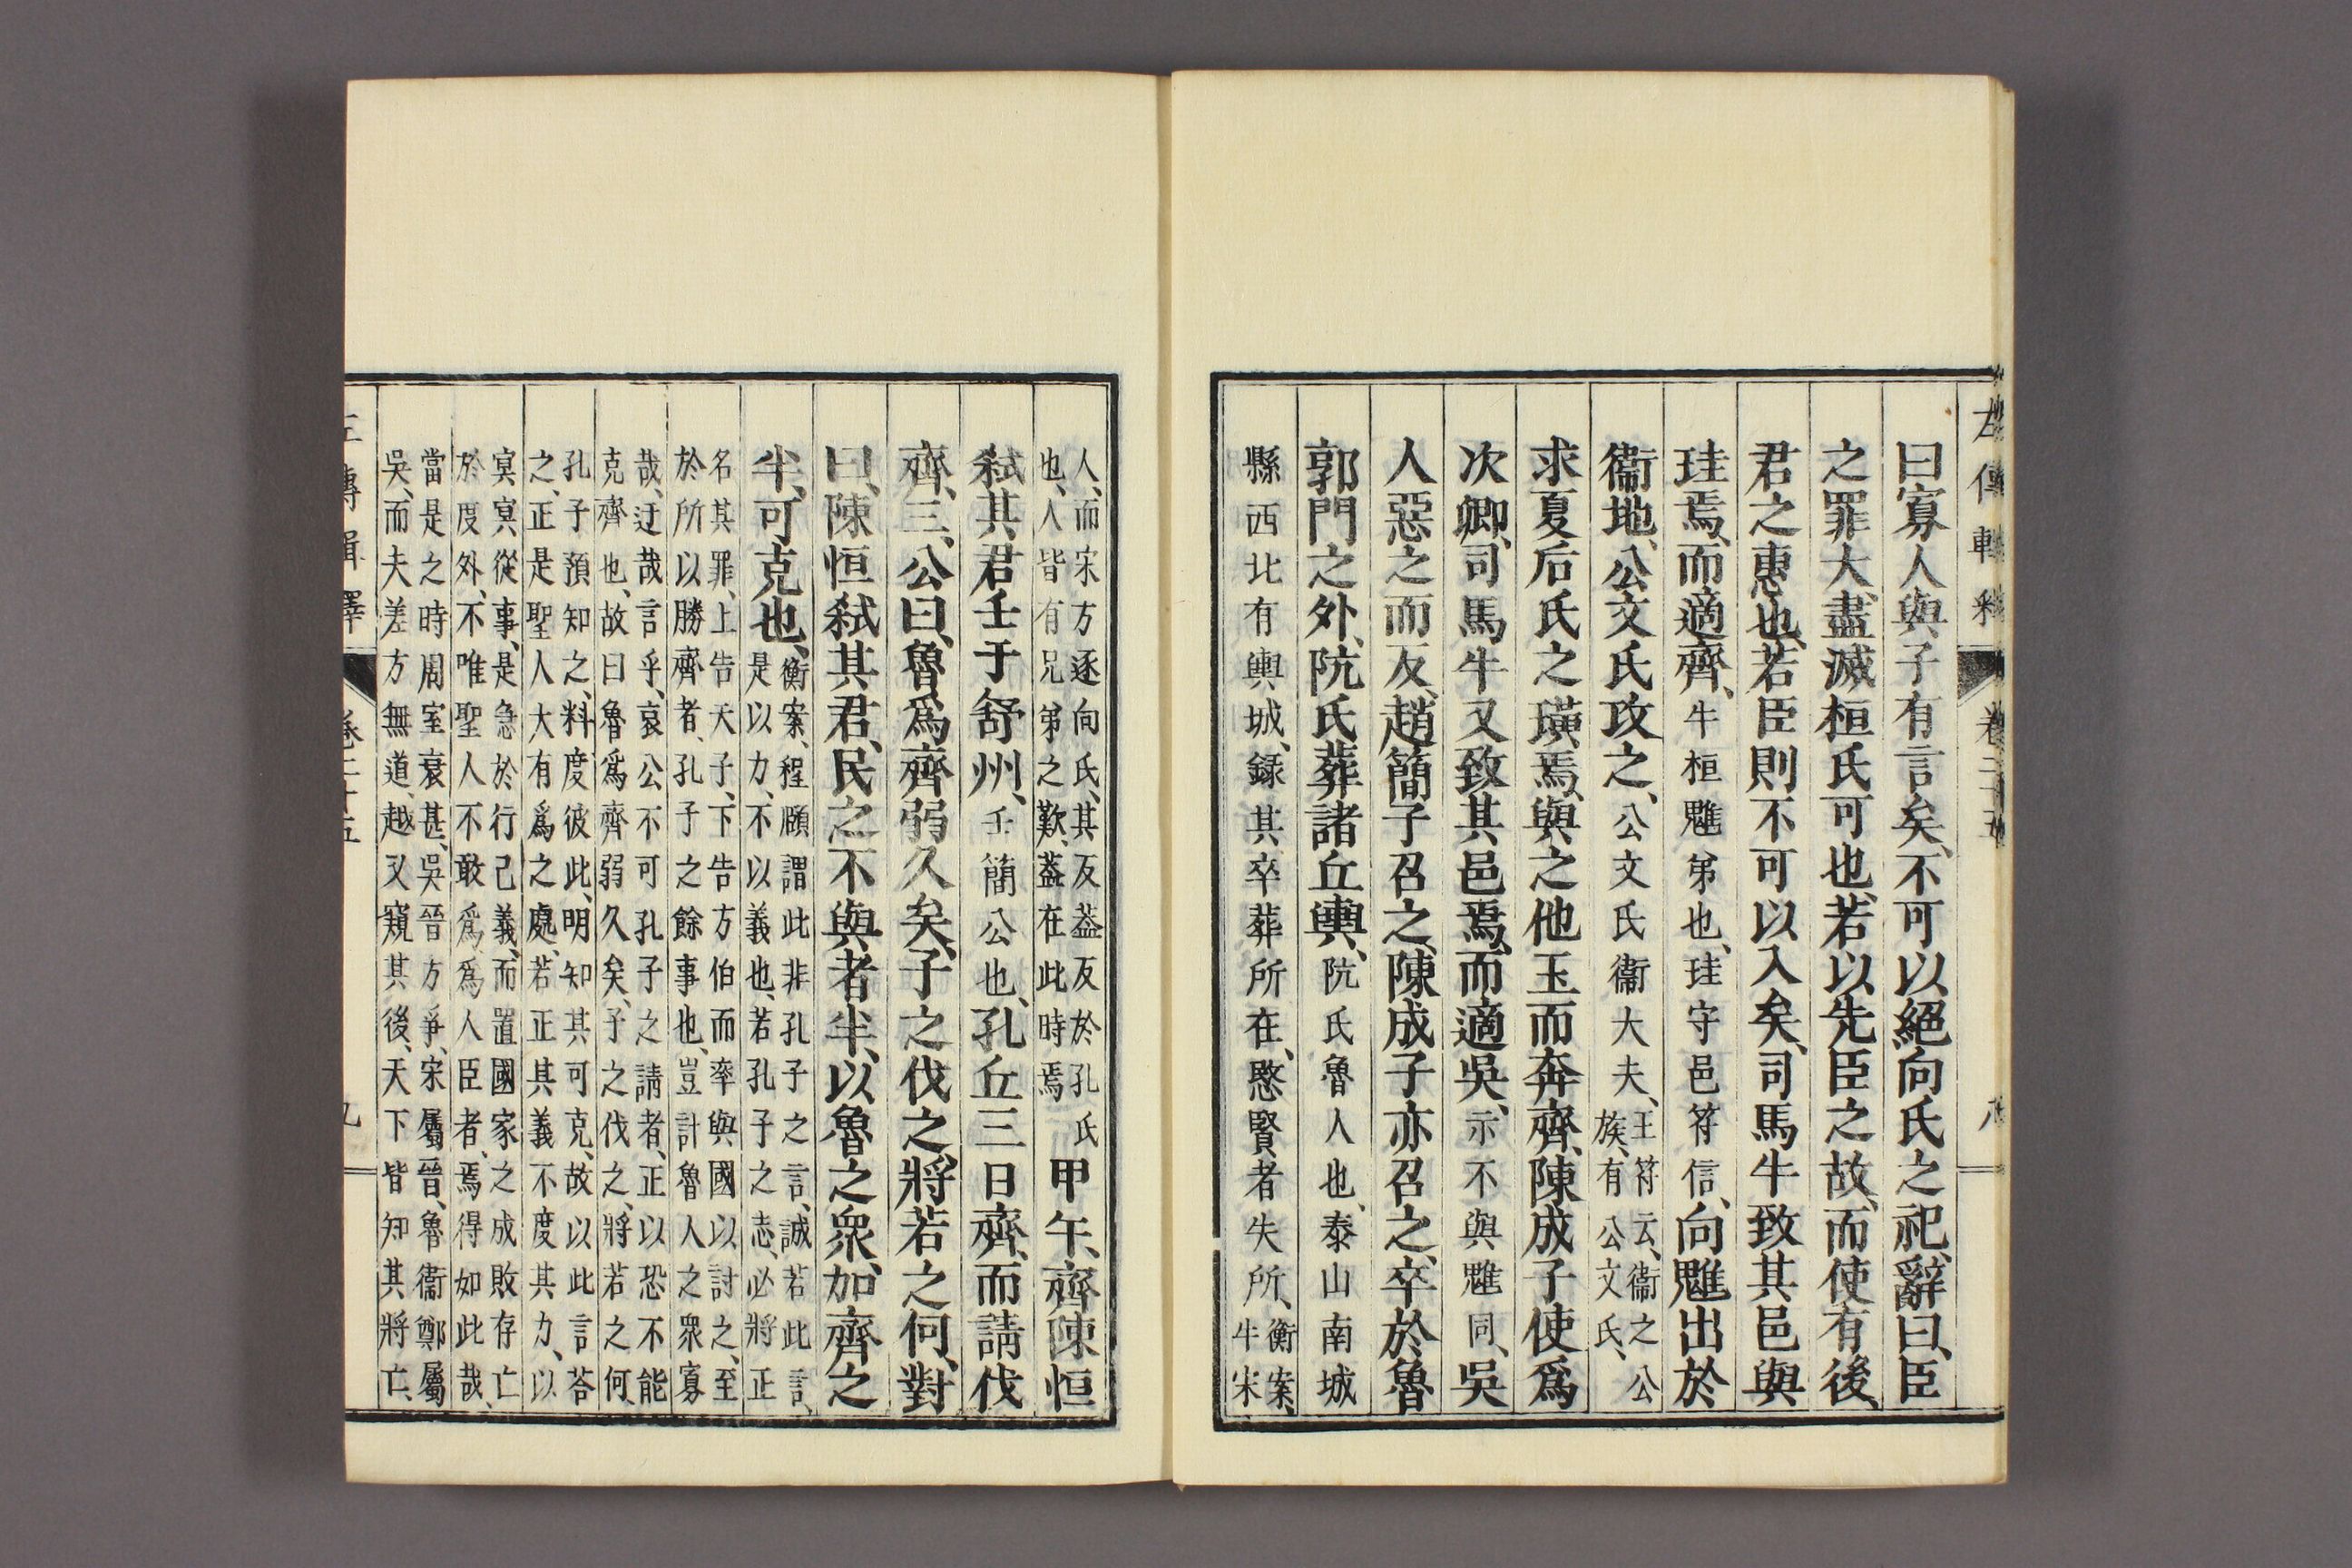 左傳輯釋 卷二十五 八
曰寡人與子有言矣、不可以絕向氏之祀、辭曰、臣
之罪大、盡滅桓氏可也、若以先臣之故、而使有後、
君之惠也、若臣則不可以入矣、司馬牛致其邑與
珪焉、而適齊、牛桓魋弟也、珪守邑符信、向魋出於
衞地、公文氏攻之、公文氏衞大夫、王符云、衞之公族、有公文氏、
求夏后氏之璜焉、與之他玉而奔齊、陳成子使爲
次卿、司馬牛又致其邑焉、而適吳、示不與魋同、吳
人惡之而反、趙簡子召之、陳成子亦召之、卒於魯
郭門之外、阬氏葬諸丘輿、阬氏魯人也、泰山南城
縣西北有輿城、録其卒葬所在、愍賢者失所、衡案、牛宋
人、而宋方逐向氏、其反葢反於孔氏
也、人皆有兄弟之歎、葢在此時焉
甲午、齊陳恒
弑其君壬于舒州、壬簡公也、孔丘三日齊、而請伐
齊、三、公曰、魯爲齊弱久矣、子之伐之、將若之何、對
曰、陳恒弑其君、民之不與者半、以魯之衆、加齊之
半、可克也、
衡案、程頤謂此非孔子之言、誠若此言、
是以力、不以義也、若孔子之志、必將正
名其罪、上告天子、下告方伯而率與國以討之、至
於所以勝齊者、孔子之餘事也、豈計魯人之衆寡
哉、迂哉言乎、哀公不可孔子之請者、正以恐不能
克齊也、故曰魯爲齊弱久矣、子之伐之、將若之何、
孔子預知之、料度彼此、明知其可克、故以此言荅
之、正是聖人大有爲之處、若正其義不度其力、以
冥冥從事、是急於行己義、而置國家之成敗存亡
於度外、不唯聖人不敢爲、爲人臣者、焉得如此哉、
當是之時周室衰甚、吳晉方爭、宋屬晉、魯衞鄭屬
吳、而夫差方無道、越又窺其後、天下皆知其將亡、
左傳輯釋 卷二十五 九